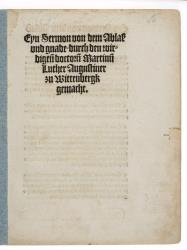 Eyn Sermon von dem Ablaß
vnd gnade durch den wir-
digen̄ doctorn̄ Martinū
Luther Augustiner
zu Wittenbergk
gemacht.